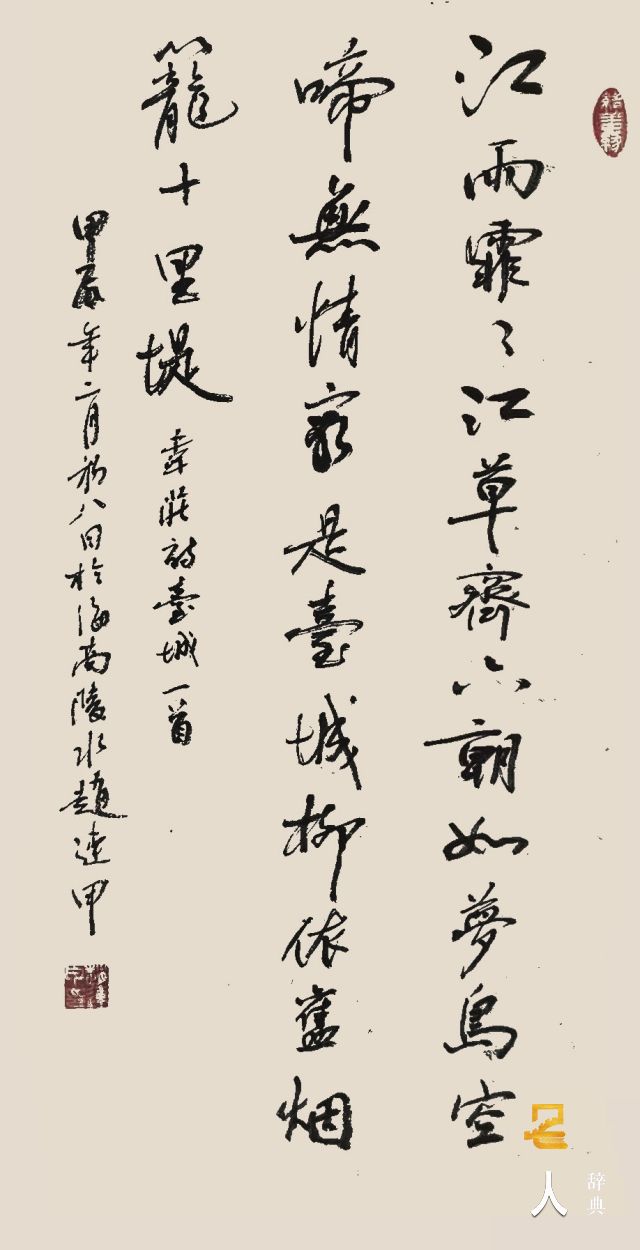 江雨霏〻江草齊六朝如夢鳥空
啼無情最是臺城柳依舊烟
籠十里堤
韋莊詩臺城一首
甲辰年二月初八日於海南陵水趙連甲
人
辞典